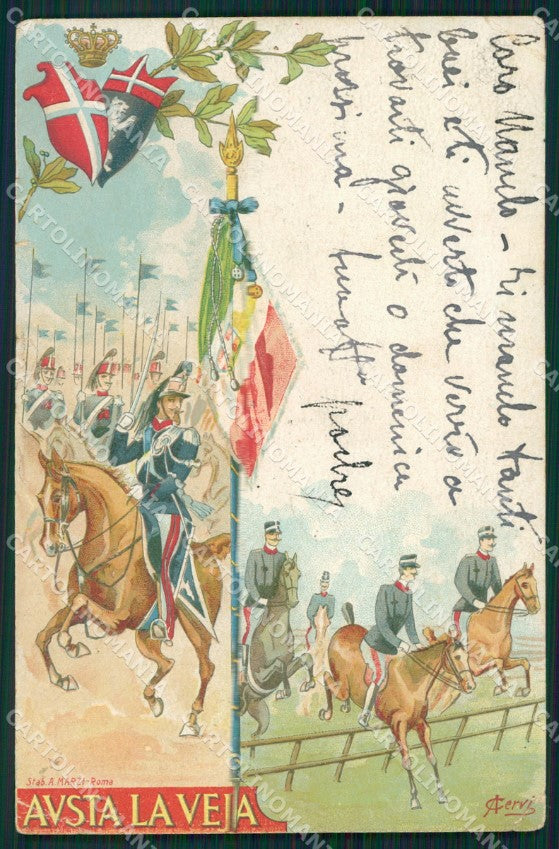 Caro Manlio – ti mando tanti
baci e ti avverto che verrò a
trovarti giovedì o domenica
prossima – tuo aff
padre
Stab. A. MARZI-Roma
AVSTA LA VEJA
ACervi
CARTOLINOMANIA